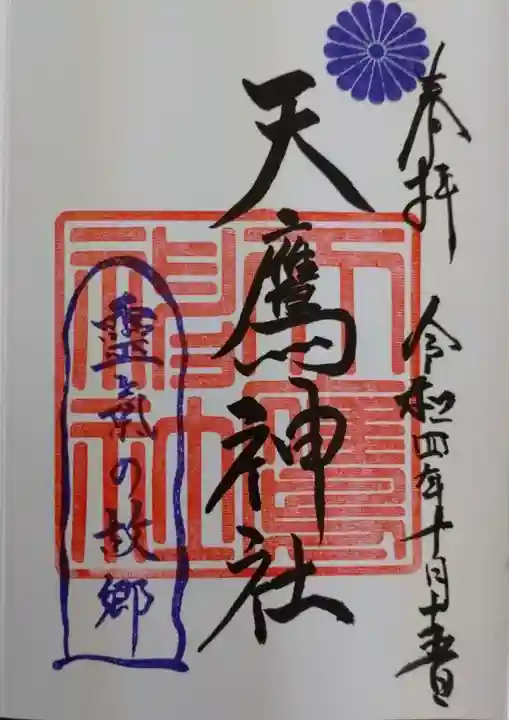 奉拝 令和四年十月十一書
天鷹神社
靈氣の故郷
天鷹神社